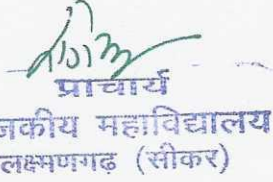 प्राचार्य
जकीय महाविद्यालय
लक्ष्मणगढ़ (सीकर)